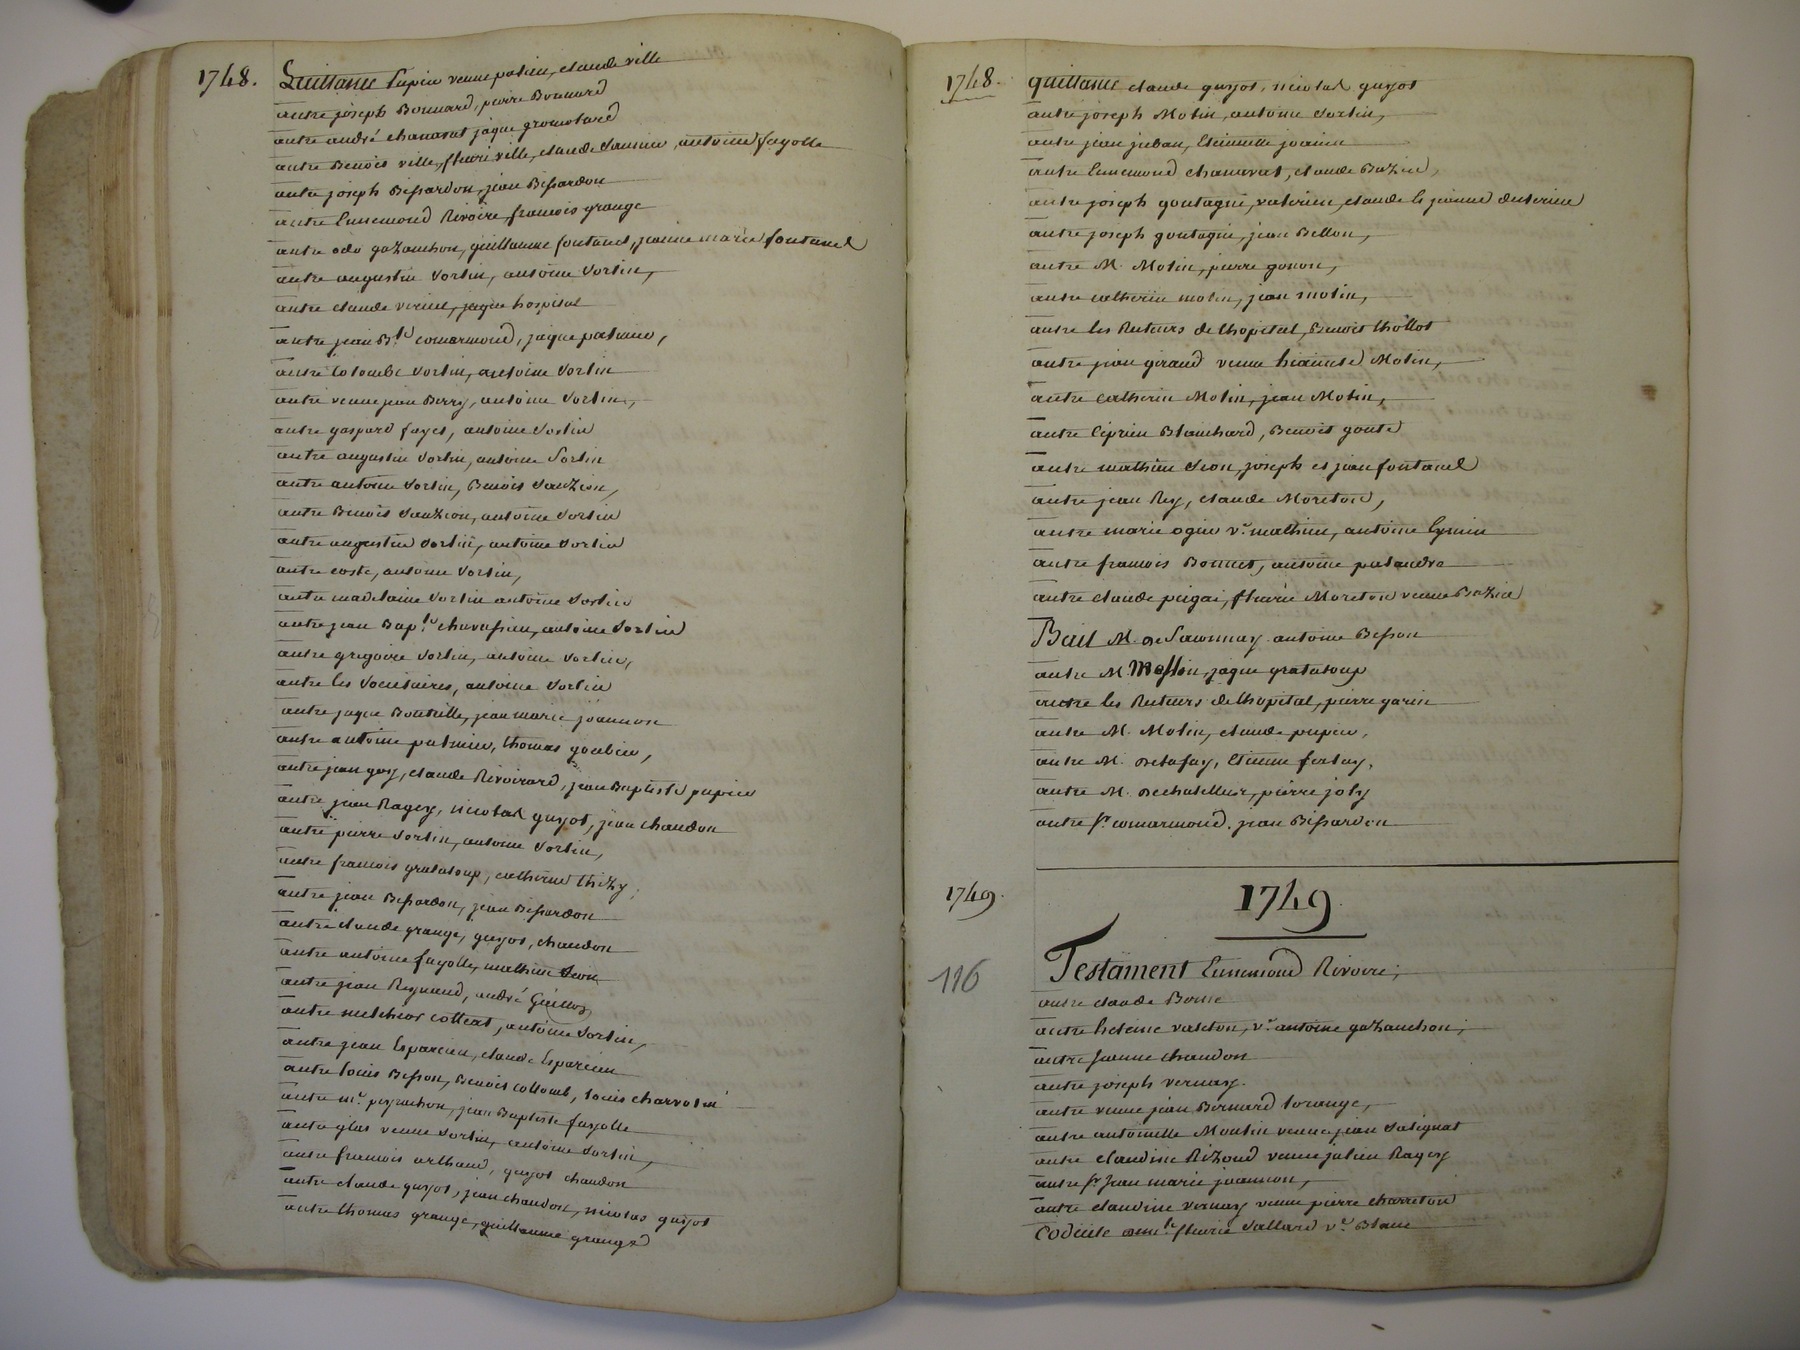 1748. Quittance Pupier veuve patieu, claude ville
autre joseph Bonnard, pierre Bonnard
autre andré chanavat jaque gromolard
autre Benois ville, fleuri ville, claude Saunier, antoine fayolle
autre joseph Bissardon, jean Bissardon
autre Ennemond Rivoire, francois grange
autre odo gazanchon, guillaume fontanel, jeanne marie fontanel
autre augustin Sorlin, antoine Sorlin,
autre claude viriel, jaque hospital
autre jean B.te comarmond, jaque palmier,
autre Colombe Sorlin, antoine Sorlin
autre veuve jean Berry, antoine Sorlin,
autre gaspard fayet, antoine Sorlin
autre augustin Sorlin, antoine Sorlin
autre antoine Sorlin, Benois Sauzion,
autre Benois Sauzion, antoine Sorlin
autre augustin Sorlin, antoine Sorlin
autre coste, antoine Sorlin,
autre madelaine Sorlin antoine Sorlin
autre jean Bap.te chavassieu, antoine Sorlin
autre gregoire Sorlin, antoine Sorlin,
autre les Societaires, antoine Sorlin
autre jaque Bouteille, jean marie joannon
autre antoine palmier, thomas goubier,
autre jean goy, claude Rivoirard, jean Baptiste pupier
autre jean Ragey, nicolas guyot, jean chaudon
autre pierre Sorlin, antoine Sorlin,
autre francois grataloup, catherine thizy,
autre jean Bissardon, jean Bissardon
autre claude grange, guyot, chaudon
autre antoine fayolle, mathieu Seon
autre jean Reynaud, andré
autre melchior colleat, antoine Sorlin,
autre jean Esparcieu, claude Esparcieu
autre louis Besson, Benois collomb, louis charvolin
autre m.e peyrachon, jean Baptiste fayolle
autre glas veuve Sorlin, antoine Sorlin,
autre francois arthaud, guyot chaudon
autre claude guyot, jean chaudon, nicolas guyot
autre thomas grange, guillaume grange
1748. quittance claude guyot, nicolas guyot
autre joseph Molin, antoine Sorlin,
autre jean juban, Etiennette joanin
autre Ennemond chanavat, claude Bazin,
autre joseph goutagni, valerien, claude le jeune
autre joseph goutagni, jean Bellon,
autre M. Molin, pierre gonon,
autre catherin molin, jean molin,
autre les Recteurs de lhopital, Benoit thollot
autre jean giraud veuve Molin,
autre catherin Molin, jean Molin,
autre Ciprien Blanchard, Benoit gonte
autre mathieu Seon, joseph et jean fontanel
autre jean Rey, claude Moreton,
autre marie ogier v.e mathieu, antoine Eymin
autre francois Bonnet, antoine palandre
autre claude peigai, fleurie Moreton veuve Bazin
Bail M. de Savonnay antoine Besson
autre M. jaque grataloup
autre les Recteurs de lhopital, pierre garin
autre M. Molin, claude pupier,
autre M. Delafay, Etienne ferlay,
autre M. dechatellus, pierre joly
autre Sr comarmond, jean Bissardon
1749. 1749.
116 Testament Ennemond Rivoire,
autre claude Bonne
autre heleine valeton, v.e antoine gazanchon,
autre jeanne chaudon
autre joseph vernay.
autre veuve jean Bernard lorange,
autre antoinette Moulin veuve jean Salignat
autre claudine Rizoud veuve julien Ragey
autre Sr jean marie joannon,
autre claudine vernay veuve pierre charreton
Codicile fleurie Sallard v.e Blanc